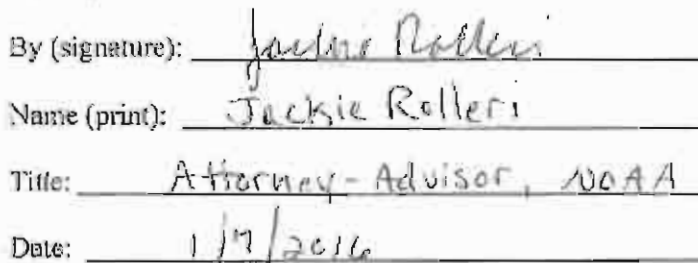 By (signature): Jackie Rolleri
Name (print): Jackie Rolleri
Title: Attorney-Advisor, NOAA
Date: 1/7/2016